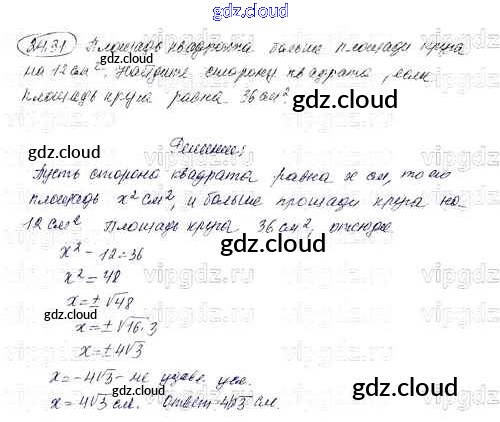 gdz.cloud
24.31 Площадь квадрата больше площади круга
на 12 см². Найдите сторону квадрата, если
площадь круга равна 36 см².
gdz.cloud
gdz.cloud
Решение:
gdz.cloud
Пусть сторона квадрата равна x см, то его
площадь x² см², и больше площади круга на
12 см² Площадь круга 36 см², отсюда
gdz.cloud
x² - 12 = 36
x² = 48
x = ± √48
gdz.cloud
gdz.cloud
x = ± √16·3
x = ± 4√3
x = -4√3 - не удовл. усл.
gdz.cloud
x = 4√3 см. Ответ 4√3 см.
gdz.cloud